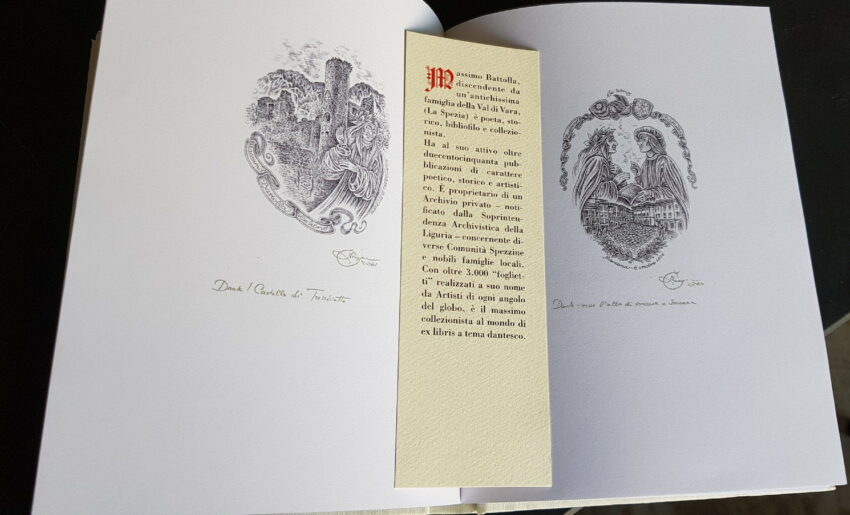 Dante / Castello di Treschietto
Massimo Battolla,
discendente da
un'antichissima
famiglia della Val di Vara,
(La Spezia) è poeta, sto-
rico, bibliofilo e collezio-
nista.
Ha al suo attivo oltre
duecentocinquanta pub-
blicazioni di carattere
poetico, storico e artisti-
co. È proprietario di un
Archivio privato – noti-
ficato dalla Soprinten-
denza Archivistica della
Liguria – concernente di-
verse Comunità Spezzine
e nobili famiglie locali.
Con oltre 3.000 "fogliet-
ti" realizzati a suo nome
da Artisti di ogni angolo
del globo, è il massimo
collezionista al mondo di
ex libris a tema dantesco.
Dante